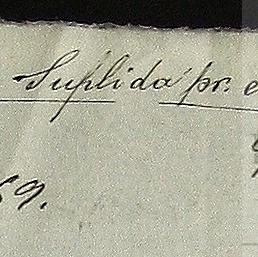 Suplida pr. e
69.